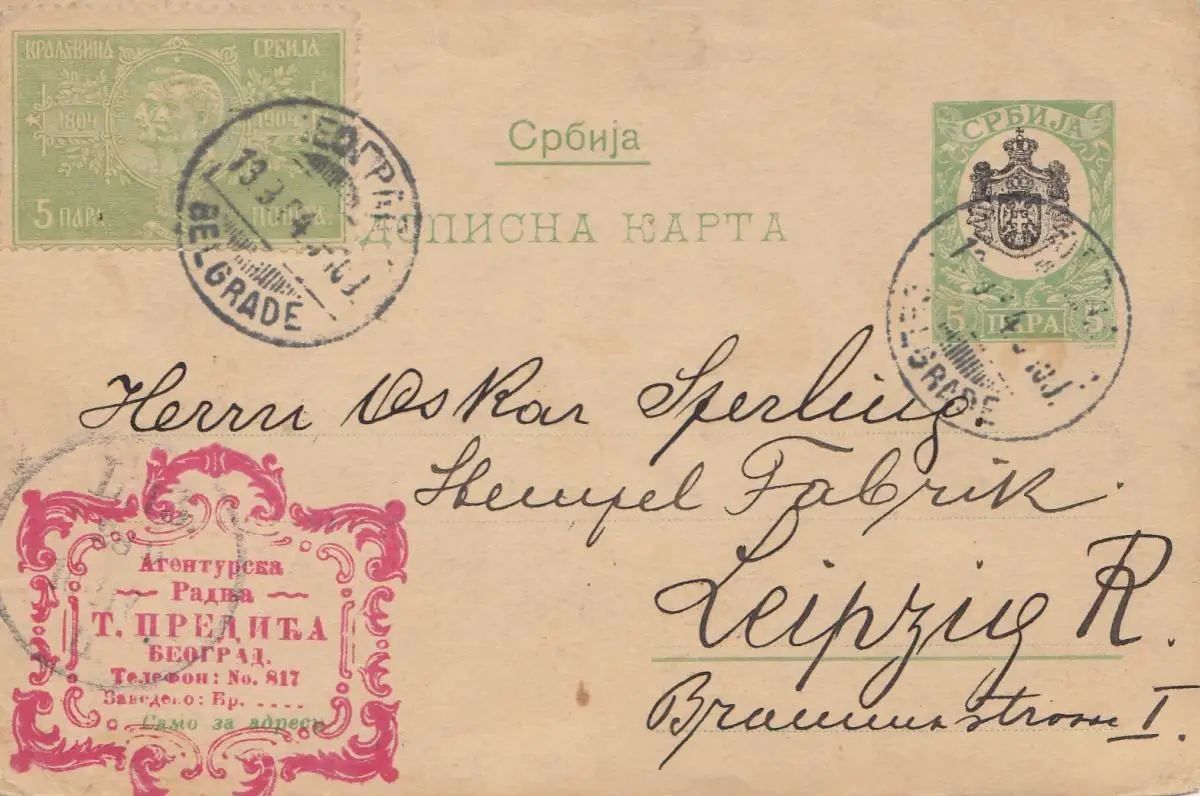 КРАЉЕВИНА СРБИЈА
1804 1904
5 ПАРА ПОШТА
БЕОГРАД
BELGRADE
Србија
ДОПИСНА КАРТА
СРБИЈА
5 ПАРА 5
BELGRADE
Herrn Oskar Sperling
Stempel Fabrik.
Leipzig R.
I.
Агентурска
Радња
Т. ПРЕДИЋА
БЕОГРАД.
Телефон: No. 817
Заведено: Бр. ....
Само за адресу